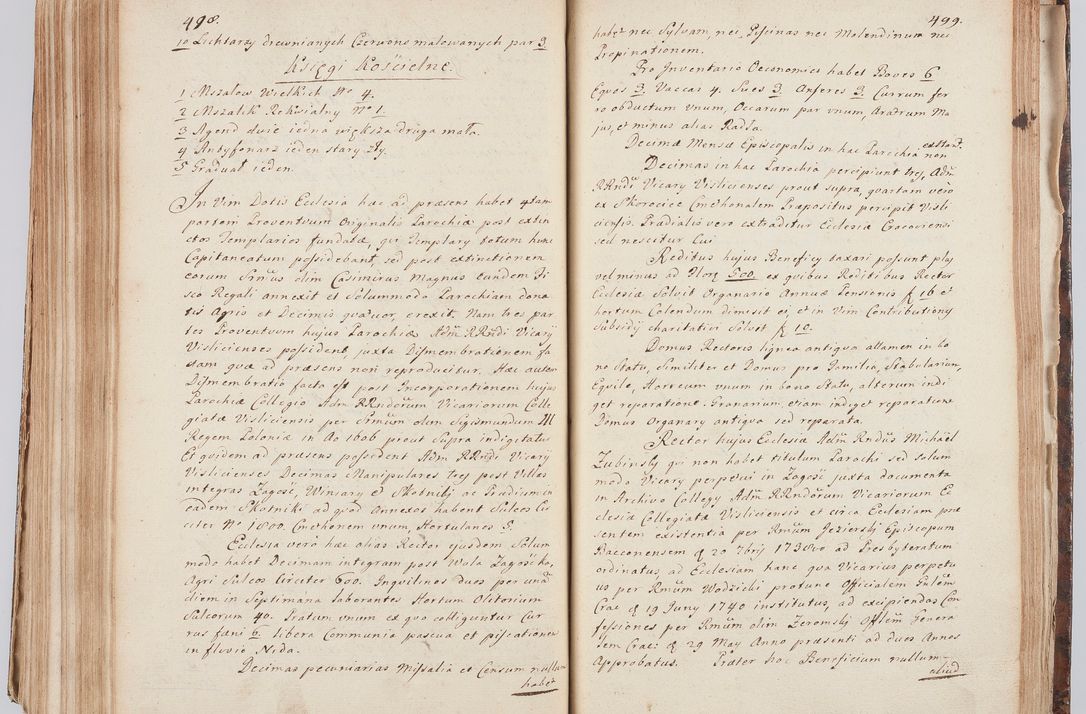 498.
10 Lichtarzy drewnianych Czerwono malowanych par 3
Księgi Kościelne.
1 Mszałow Wielkich No 4.
2 Mszalik Rekwialny No 1.
3 Agend dwie iedna większa druga mała.
4 Antyfonarz ieden stary
5 Graduał ieden.
In Vim Dotis Ecclesia hæc ad præsens habet 4tam
partem Proventuum Originalis Parochiæ post extin
ctos Templarios fundatæ, qui Templary totum hunc
Capitaneatum possidebant, sed post extinctionem
eorum olim Casimirus Magnus eundem Fi
sco Regali annexit et Solummodo Parochiam dona
tis Agris et Decimis quatuor erexit. Nam tres par
tes Proventuum hujus Parochiæ Adm RRndi Vicarij
Vislicienses possident, juxta Dismembrationem fa
ctam quæ ad præsens non reproducitur. Hæc autem
Dismembratio facta est post Incorporationem hujus
Parochiæ Collegio Adm RRndorum Vicariorum Colle
giatæ Visliciensis per olim Sigismundum III
Regem Poloniæ in Ao 1606 prout Supra indigitatur
Et quidem ad præsens possident Adm RRndi Vicarij
Vislicienses Decimas Manipulares post Villas
integras Zagość, Winiary et Skotniki ac Prædium in
eadem Skotniki ad quod Annexos habent Sulcos Cir
citer No 1800. Cmethonem unum, Hortulanos 5.
Ecclesia verò hæc alias Rector ejusdem Solum
modo habet Decimam integram post Wola Zagośćka,
Agri Sulcos Circiter 600. Inquilinos duos per unā
diem in Septimana laborantes Hortum Olitorium
Sulcorum 40. Pratum unum ex quo colliguntur Cur
rus fæni 6. libera Communia pascua et piscationem
in fluvio Nida.
Decimas pecuniarias Missalia et Censum nullum
habet
499.
habet nec Sylvam, nec Piscinas nec Molendinum nec
Propinationem.
Pro Inventario Oeconomico habet Boves 6
Equos 3 Vaccas 4. Sues 3 Anseres 3 Currum fer
ro obductum unum, Occarum par unum, Aratrum Ma
jus, et minus alias Radła.
Decimæ Mensæ Episcopalis in hac Parochia non extant.
Decimas in hac Parochia percipiunt Adm
RRndi Vicary Vislicienses prout supra, quartam verò
ex Skorocice Cmethonalem Præpositus percipit Visli
ciensis. Prædialis vero extraditur Ecclesiæ Cracoviensi
sed nescitur Cui
Reditus hujus Beneficy taxari possunt plus
vel minus ad flor 500. ex quibus Reditibus Rector
Ecclesiæ Solvit Organario Annuæ Pensionis f 16 et
hortum Colendum dimisit ei, et in Vim Contributionis
Subsidij charitativi Solvit f 10.
Domus Rectoris lignea antiqua attamen in bo
no Statu, Similiter et Domus pro Familia, Stabulorium,
Equile, Horreum unum in bono Statu, alterum indi
get reparatione. Granarium etiam indiget reparatione
Domus Organary antiqua sed reparata.
Rector hujus Ecclesiæ Adm Rndus Michäel
Zubinski qui non habet titulum Parochi sed solum
modo Vicary perpetui in Zagość juxta documenta
in Archivo Collegy Adm RRndorum Vicariorum Ec
clesiæ Collegiatæ Visliciensis et circa Ecclesiam præ
sentem existentia per Rmum Jezierski Episcopum
Bacconensem d 20 7bris 1738vo ad Presbyteratum
ordinatus, ad Ecclesiam hanc qua Vicarius perpetu
us per Rmum Wodzicki protunc Officialem
Crac d 19 Juny 1740 institutus, ad excipiendas Con
fessiones per Rmum olim Zeromski Offlem Genera
lem Crac: d 29 May Anno præsenti ad duos Annos
Approbatus. Præter hoc Beneficium nullum
aliud